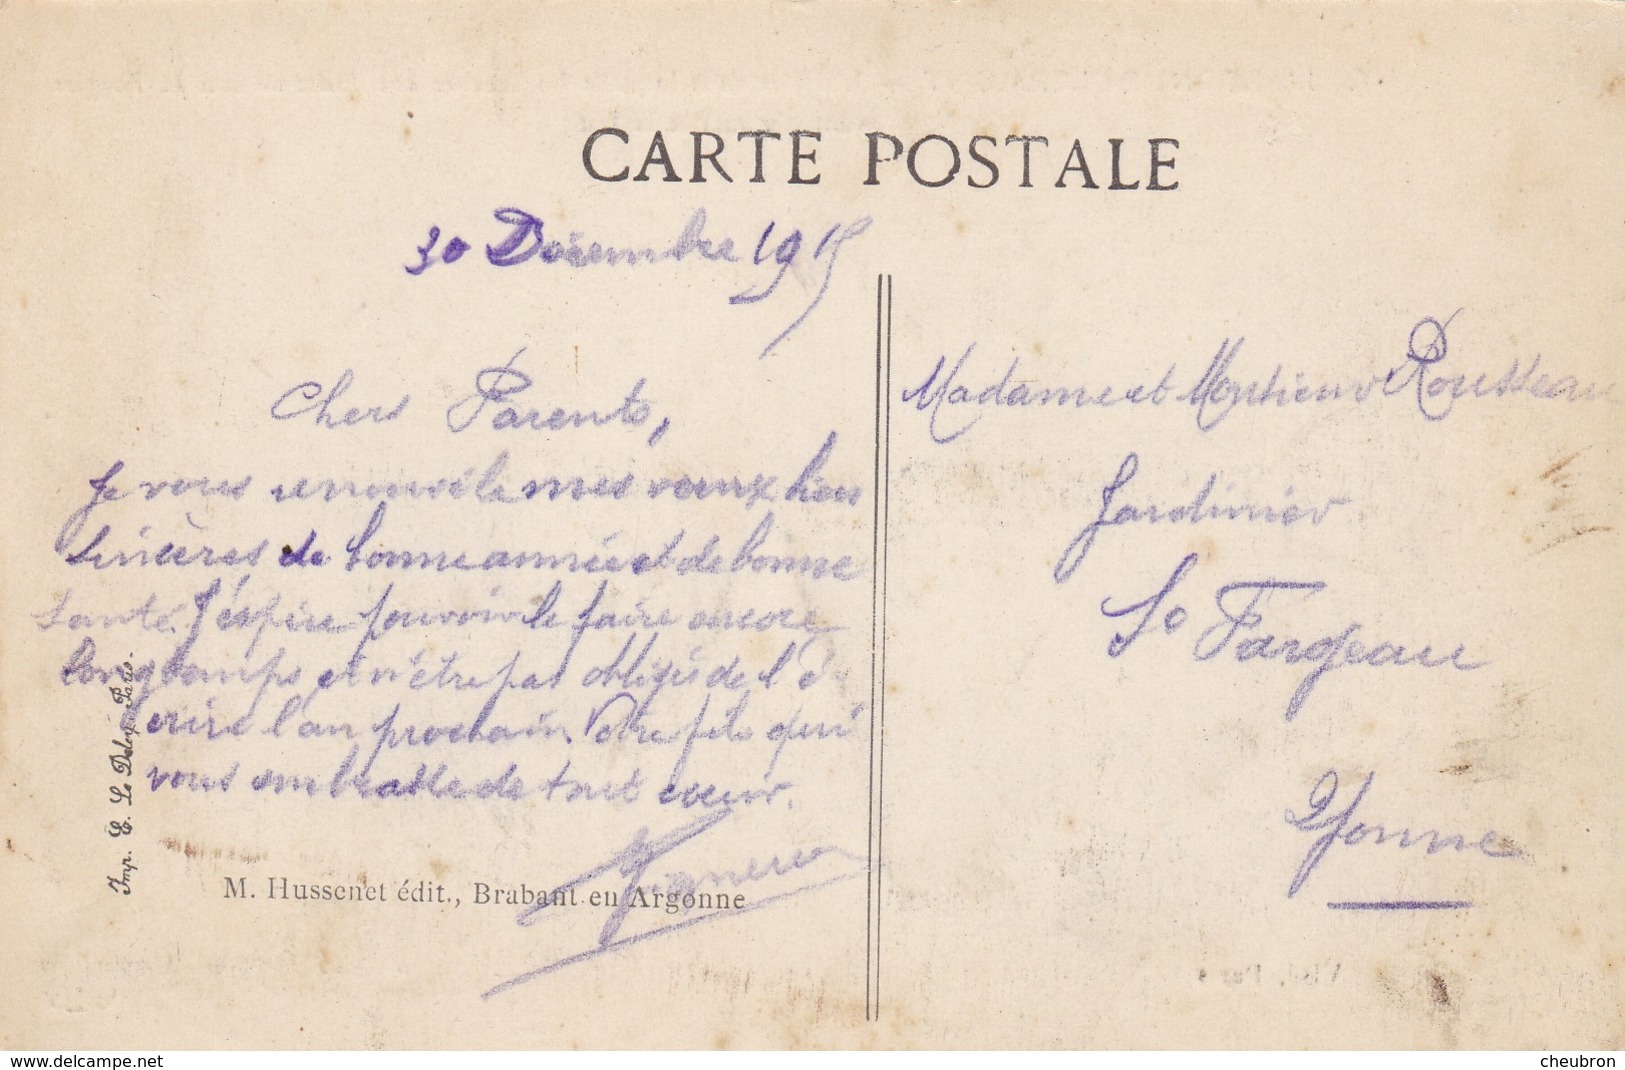 CARTE POSTALE
30 Décembre 1915
Chers Parents,
Je vous renouvèle mes vœux bien
sincères de bonne année et de bonne
santé. J'éspère pouvoir le faire encore
longtemps et n'être pas obligés de l'é-
crire l'an prochain. Votre fils qui
vous embrasse de tout cœur.
M. Hussenet édit., Brabant en Argonne
Imp. E. Le Deley, Paris.
Madame et Monsieur Rousseau
Jardinier
St Fargeau
Yonne
www.delcampe.net
cheubron